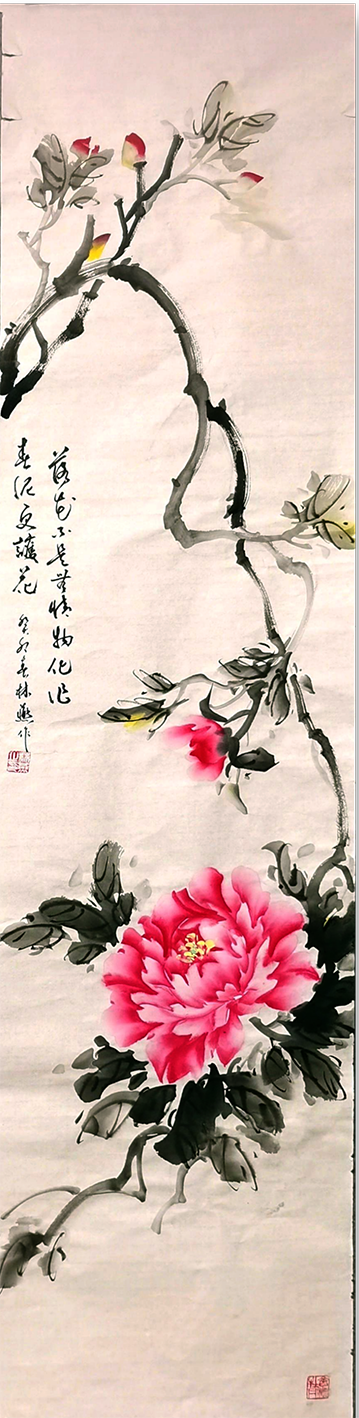 落花不是无情物化作
春泥更護花
癸卯春林燕作